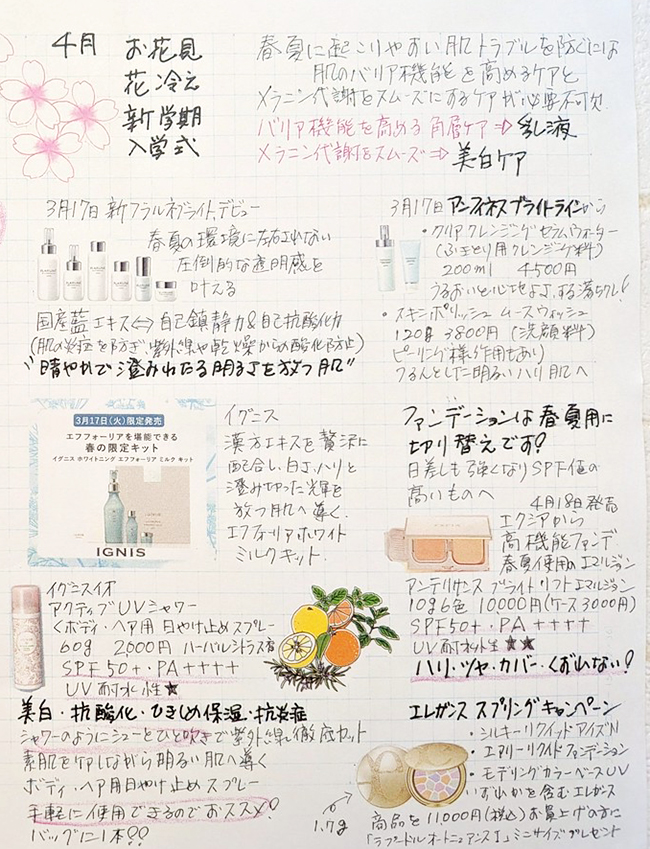 4月
お花見
花冷え
新学期
入学式
春夏に起こりやすい肌トラブルを防ぐには
肌のバリア機能を高めるケアと
メラニン代謝をスムーズにするケアが必要不可欠
バリア機能を高める角層ケア⇒乳液
メラニン代謝をスムーズ⇒美白ケア
3月17日 新フラルネブライトデビュー
春夏の環境に左右されない
圧倒的な透明感を
叶える
国産藍エキス⇔自己鎮静力&自己抗酸化力
(肌の炎症を防ぎ、紫外線や乾燥からの酸化防止)
"晴やかで澄みわたる明るさを放つ肌"
3月17日 アンフィネスブライトラインから
・クリアクレンジングセラムウォーター
(ふきとり用クレンジング料)
200ml 4500円
うるおいと心地よさ、する落ちクレ!
・スキンポリッシュ ムースウォッシュ
120g 3800円(洗顔料)
ピーリング様作用もあり
つるんとした明るいハリ肌へ
3月17日(火)限定発売
エフフォーリアを堪能できる
春の限定キット
イグニス ホワイトニング エフフォーリア ミルク キット
IGNIS
イグニス
漢方エキスを贅沢に
配合し、白さ、ハリと
澄み切った光輝を
放つ肌へ導く。
エフフォリアホワイト
ミルクキット
ファンデーションは春夏用に
切り替えです!
日差しも強くなりSPF値の
高いものへ
4月18日発売
エクシアから
高機能ファンデ
春夏使用のエマルジョン
アンテリサンス ブライトリフトエマルジョン
10g6色 10000円(ケース3000円)
SPF50+・PA++++
UV耐水性★★
ハリ・ツヤ・カバー・くずれない!
イグニスイオ
アクティブUVシャワー
<ボディ・ヘア用 日やけ止めスプレー
60g 2000円 ハーバルシトラス香
SPF50+・PA++++
UV耐水性★
美白・抗酸化・ひきしめ保湿・抗炎症
シャワーのようにシューとひと吹きで紫外線徹底カット
素肌をケアしながら明るい肌へ導く
ボディ・ヘア用日やけ止めスプレー
手軽に使用できるのでおススメ!
バッグに1本!!
エレガンス スプリングキャンペーン
・シルキーリクイッドアイズN
・エアリーリクイドファンデーション
・モデリングカラーベースUV
いずれかを含むエレガンス
商品を11,000円(税込)お買上げの方に
「ラプードルオートニュアンスI」ミニサイズプレゼント
1.7g